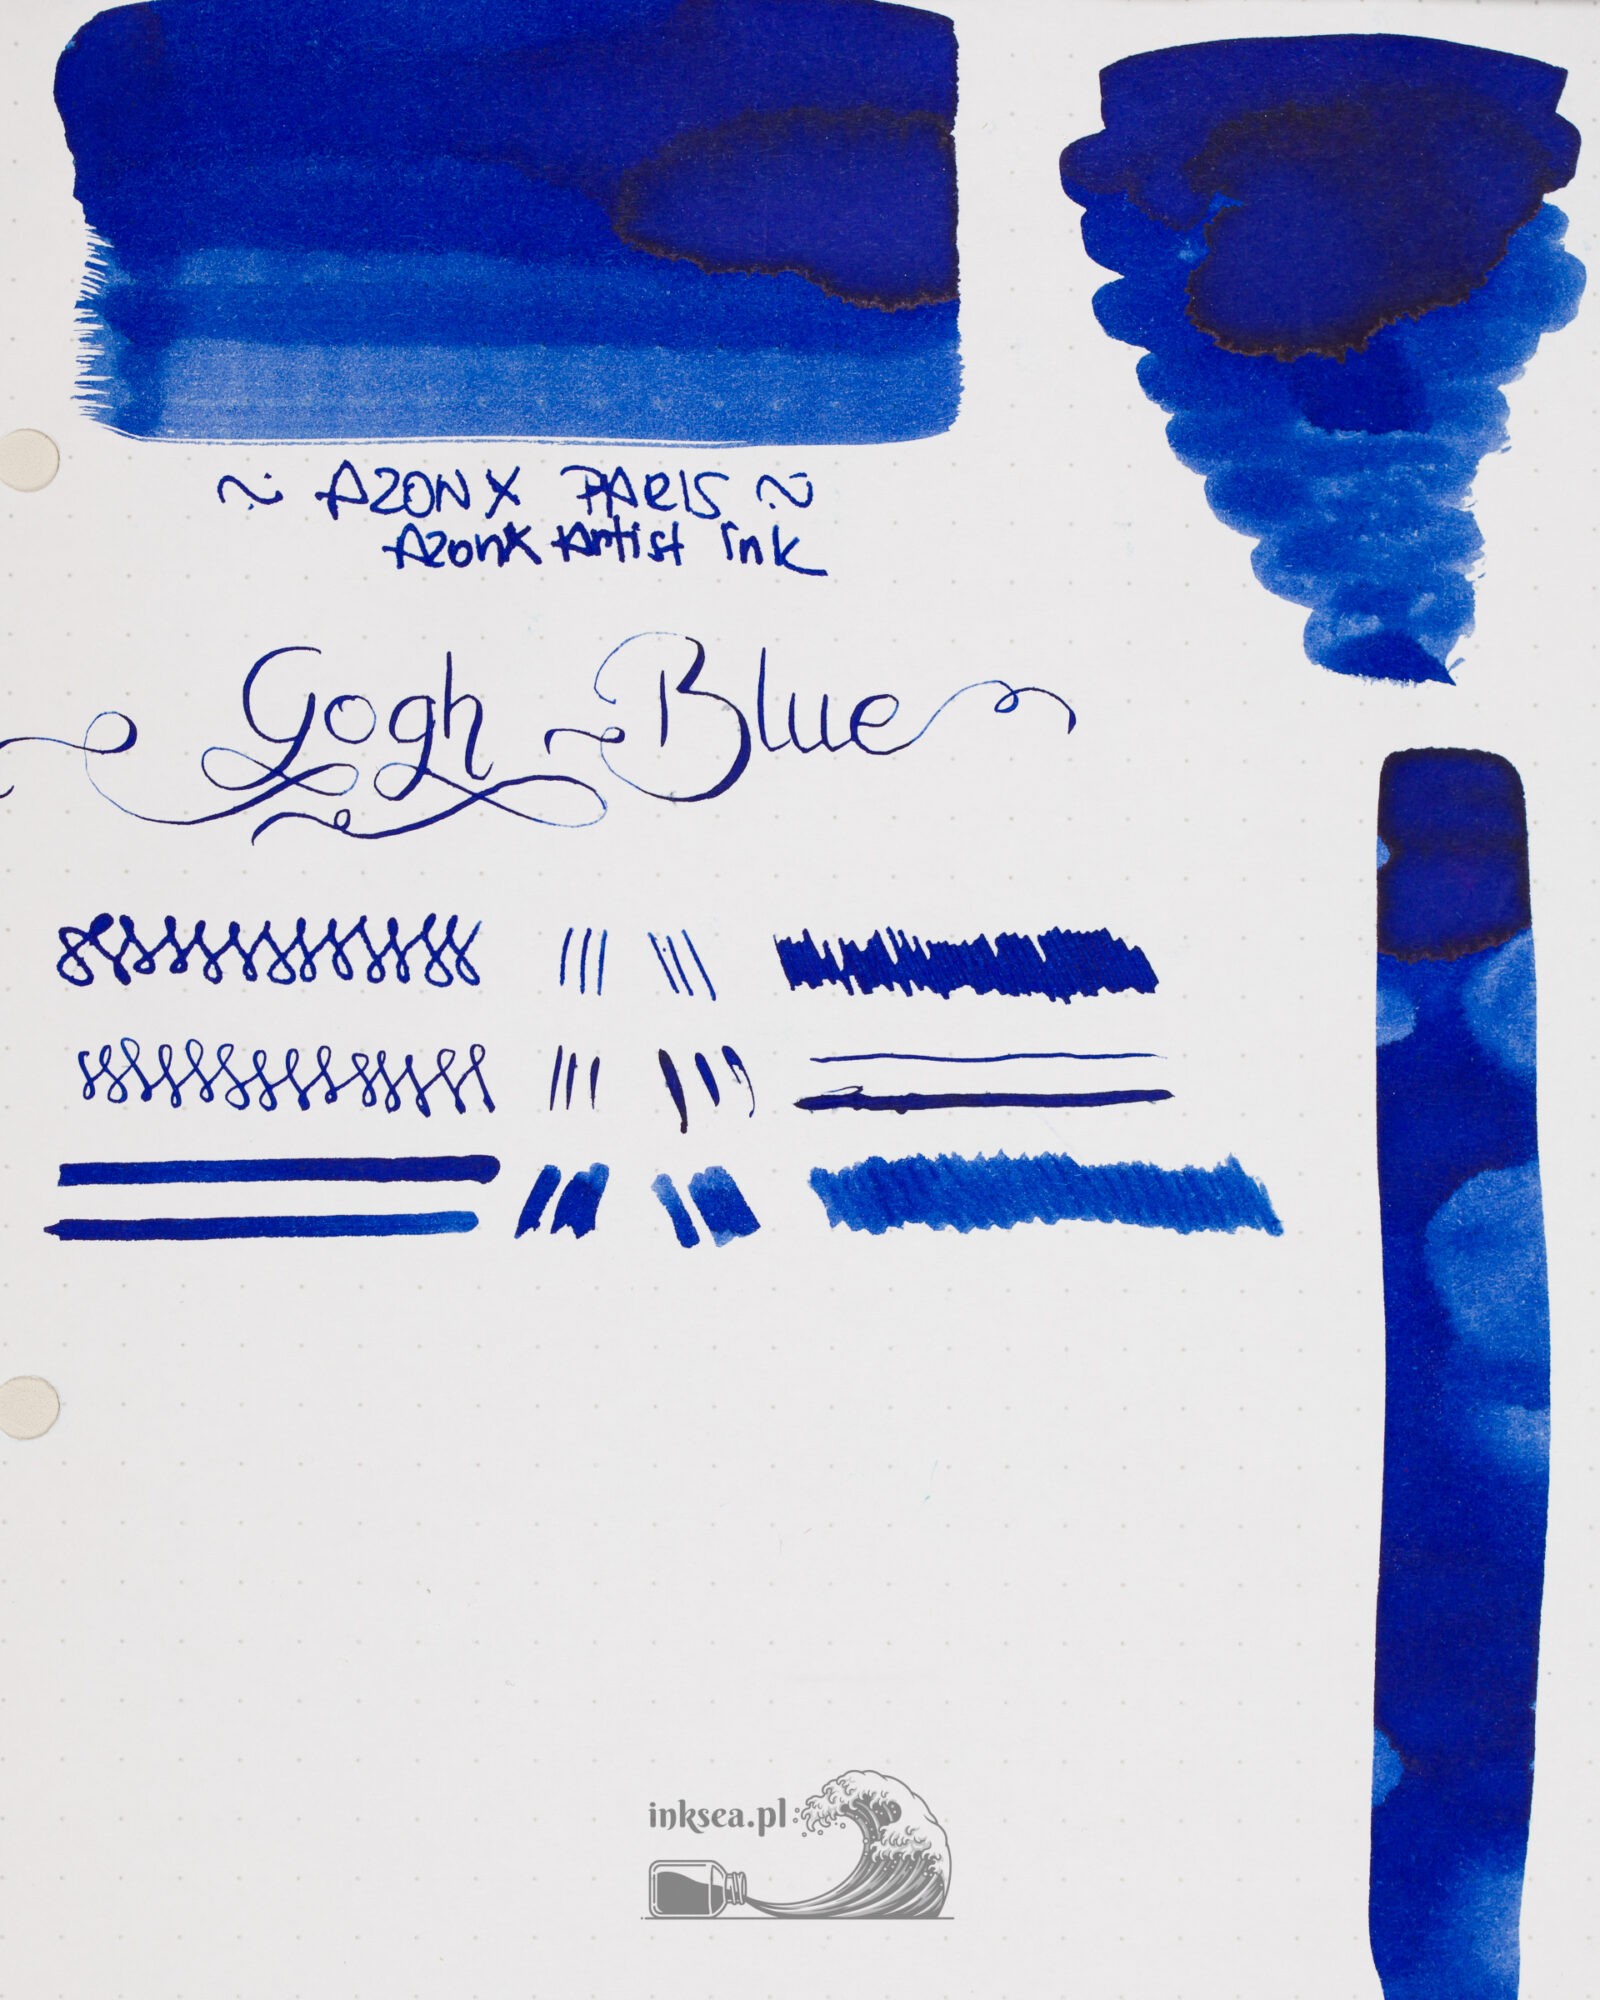 ~ AZONX PARIS ~
AzonX Artist ink
Gogh Blue
inksea.pl